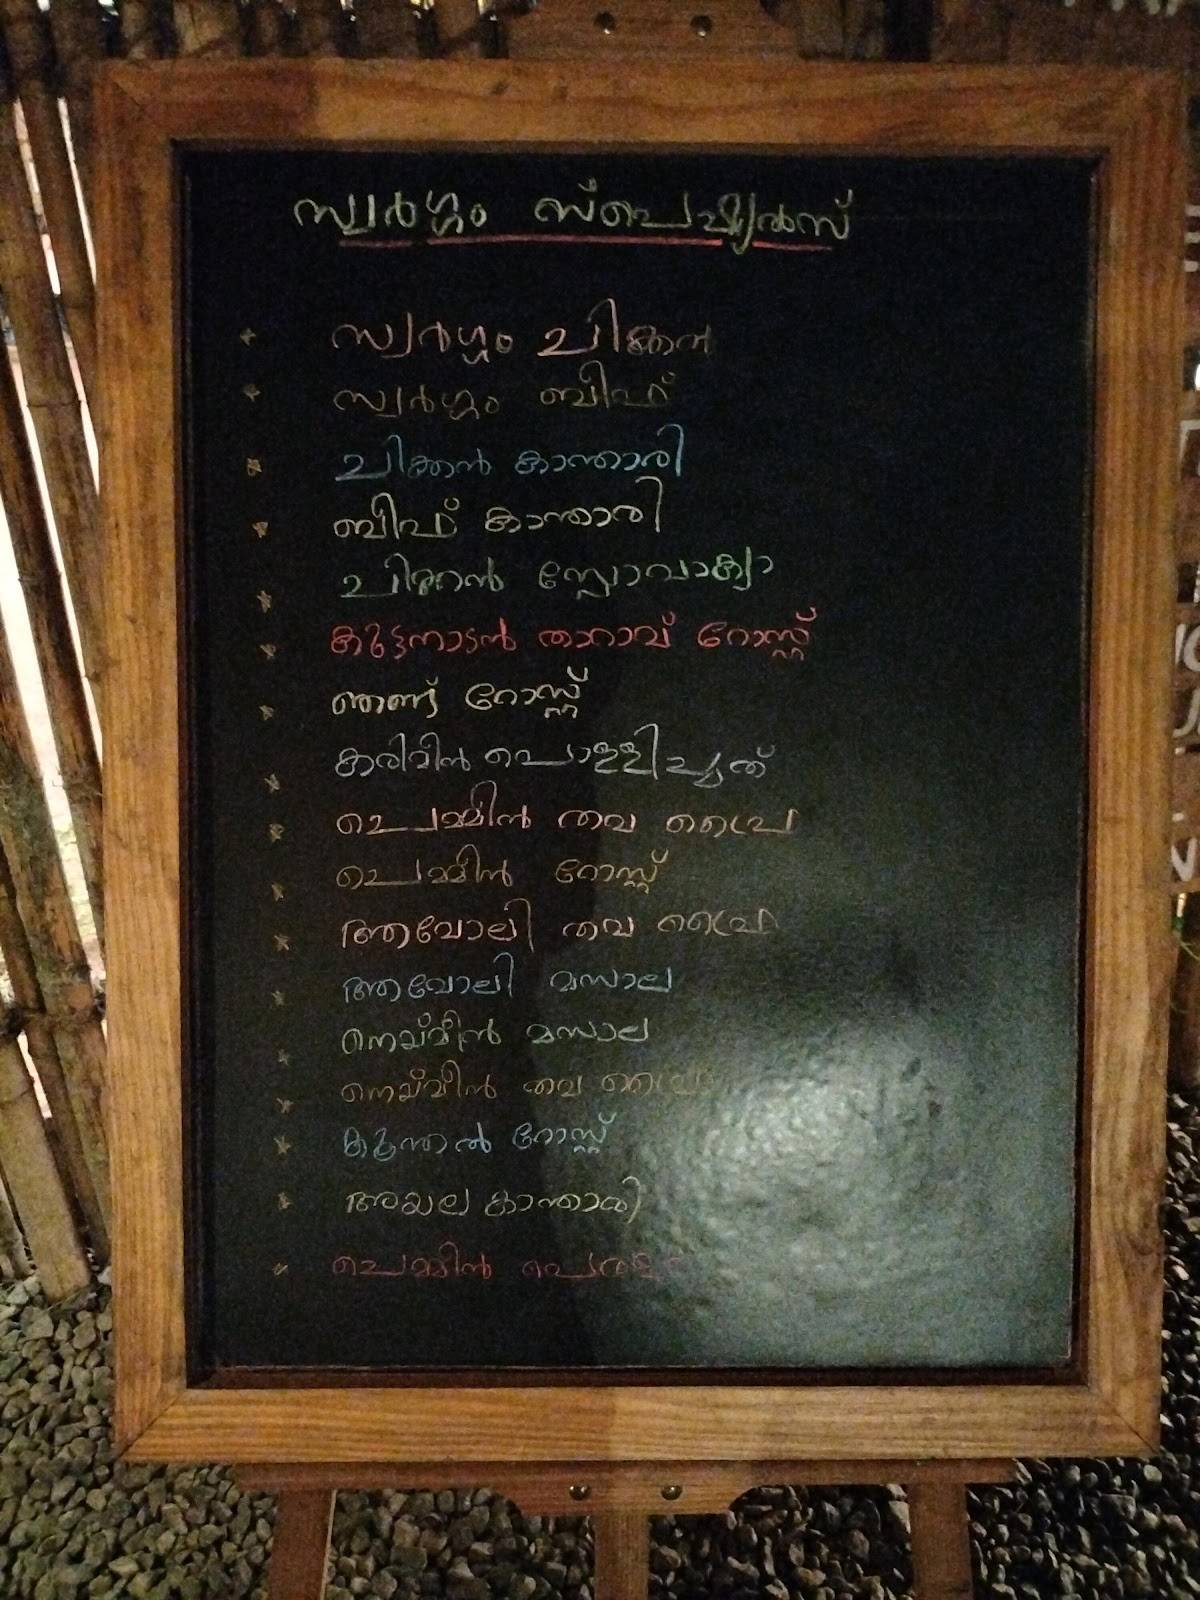 സ്വർഗ്ഗം സ്പെഷ്യൽസ്
സ്വർഗ്ഗം ചിക്കൻ
സ്വർഗ്ഗം ബീഫ്
ചിക്കൻ കാന്താരി
ബീഫ് കാന്താരി
ചിക്കൻ സ്ലോവാക്യാ
കുട്ടനാടൻ താറാവ് റോസ്റ്റ്
ഞണ്ട് റോസ്റ്റ്
കരിമീൻ പൊള്ളിച്ചത്
ചെമ്മീൻ തവ ഫ്രൈ
ചെമ്മീൻ റോസ്റ്റ്
ആവോലി തവ ഫ്രൈ
ആവോലി മസാല
നെയ്മീൻ മസാല
നെയ്മീൻ തവ ഫ്രൈ
കൂന്തൽ റോസ്റ്റ്
അയല കാന്താരി
ചെമ്മീൻ